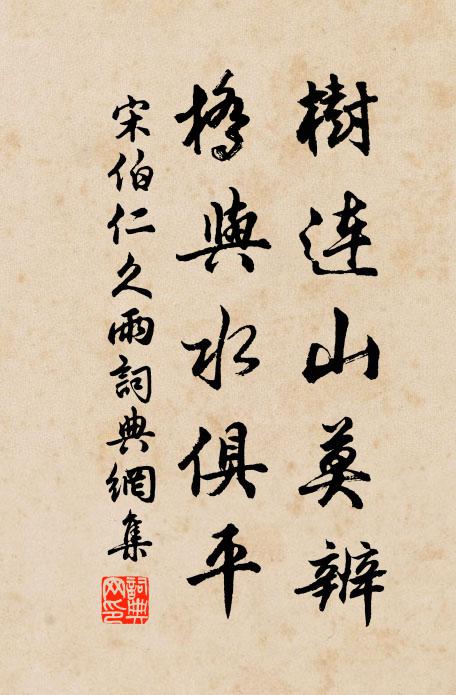 樹連山莫辨
橋與水俱平
宋伯仁久雨詞典網集
詞典网印